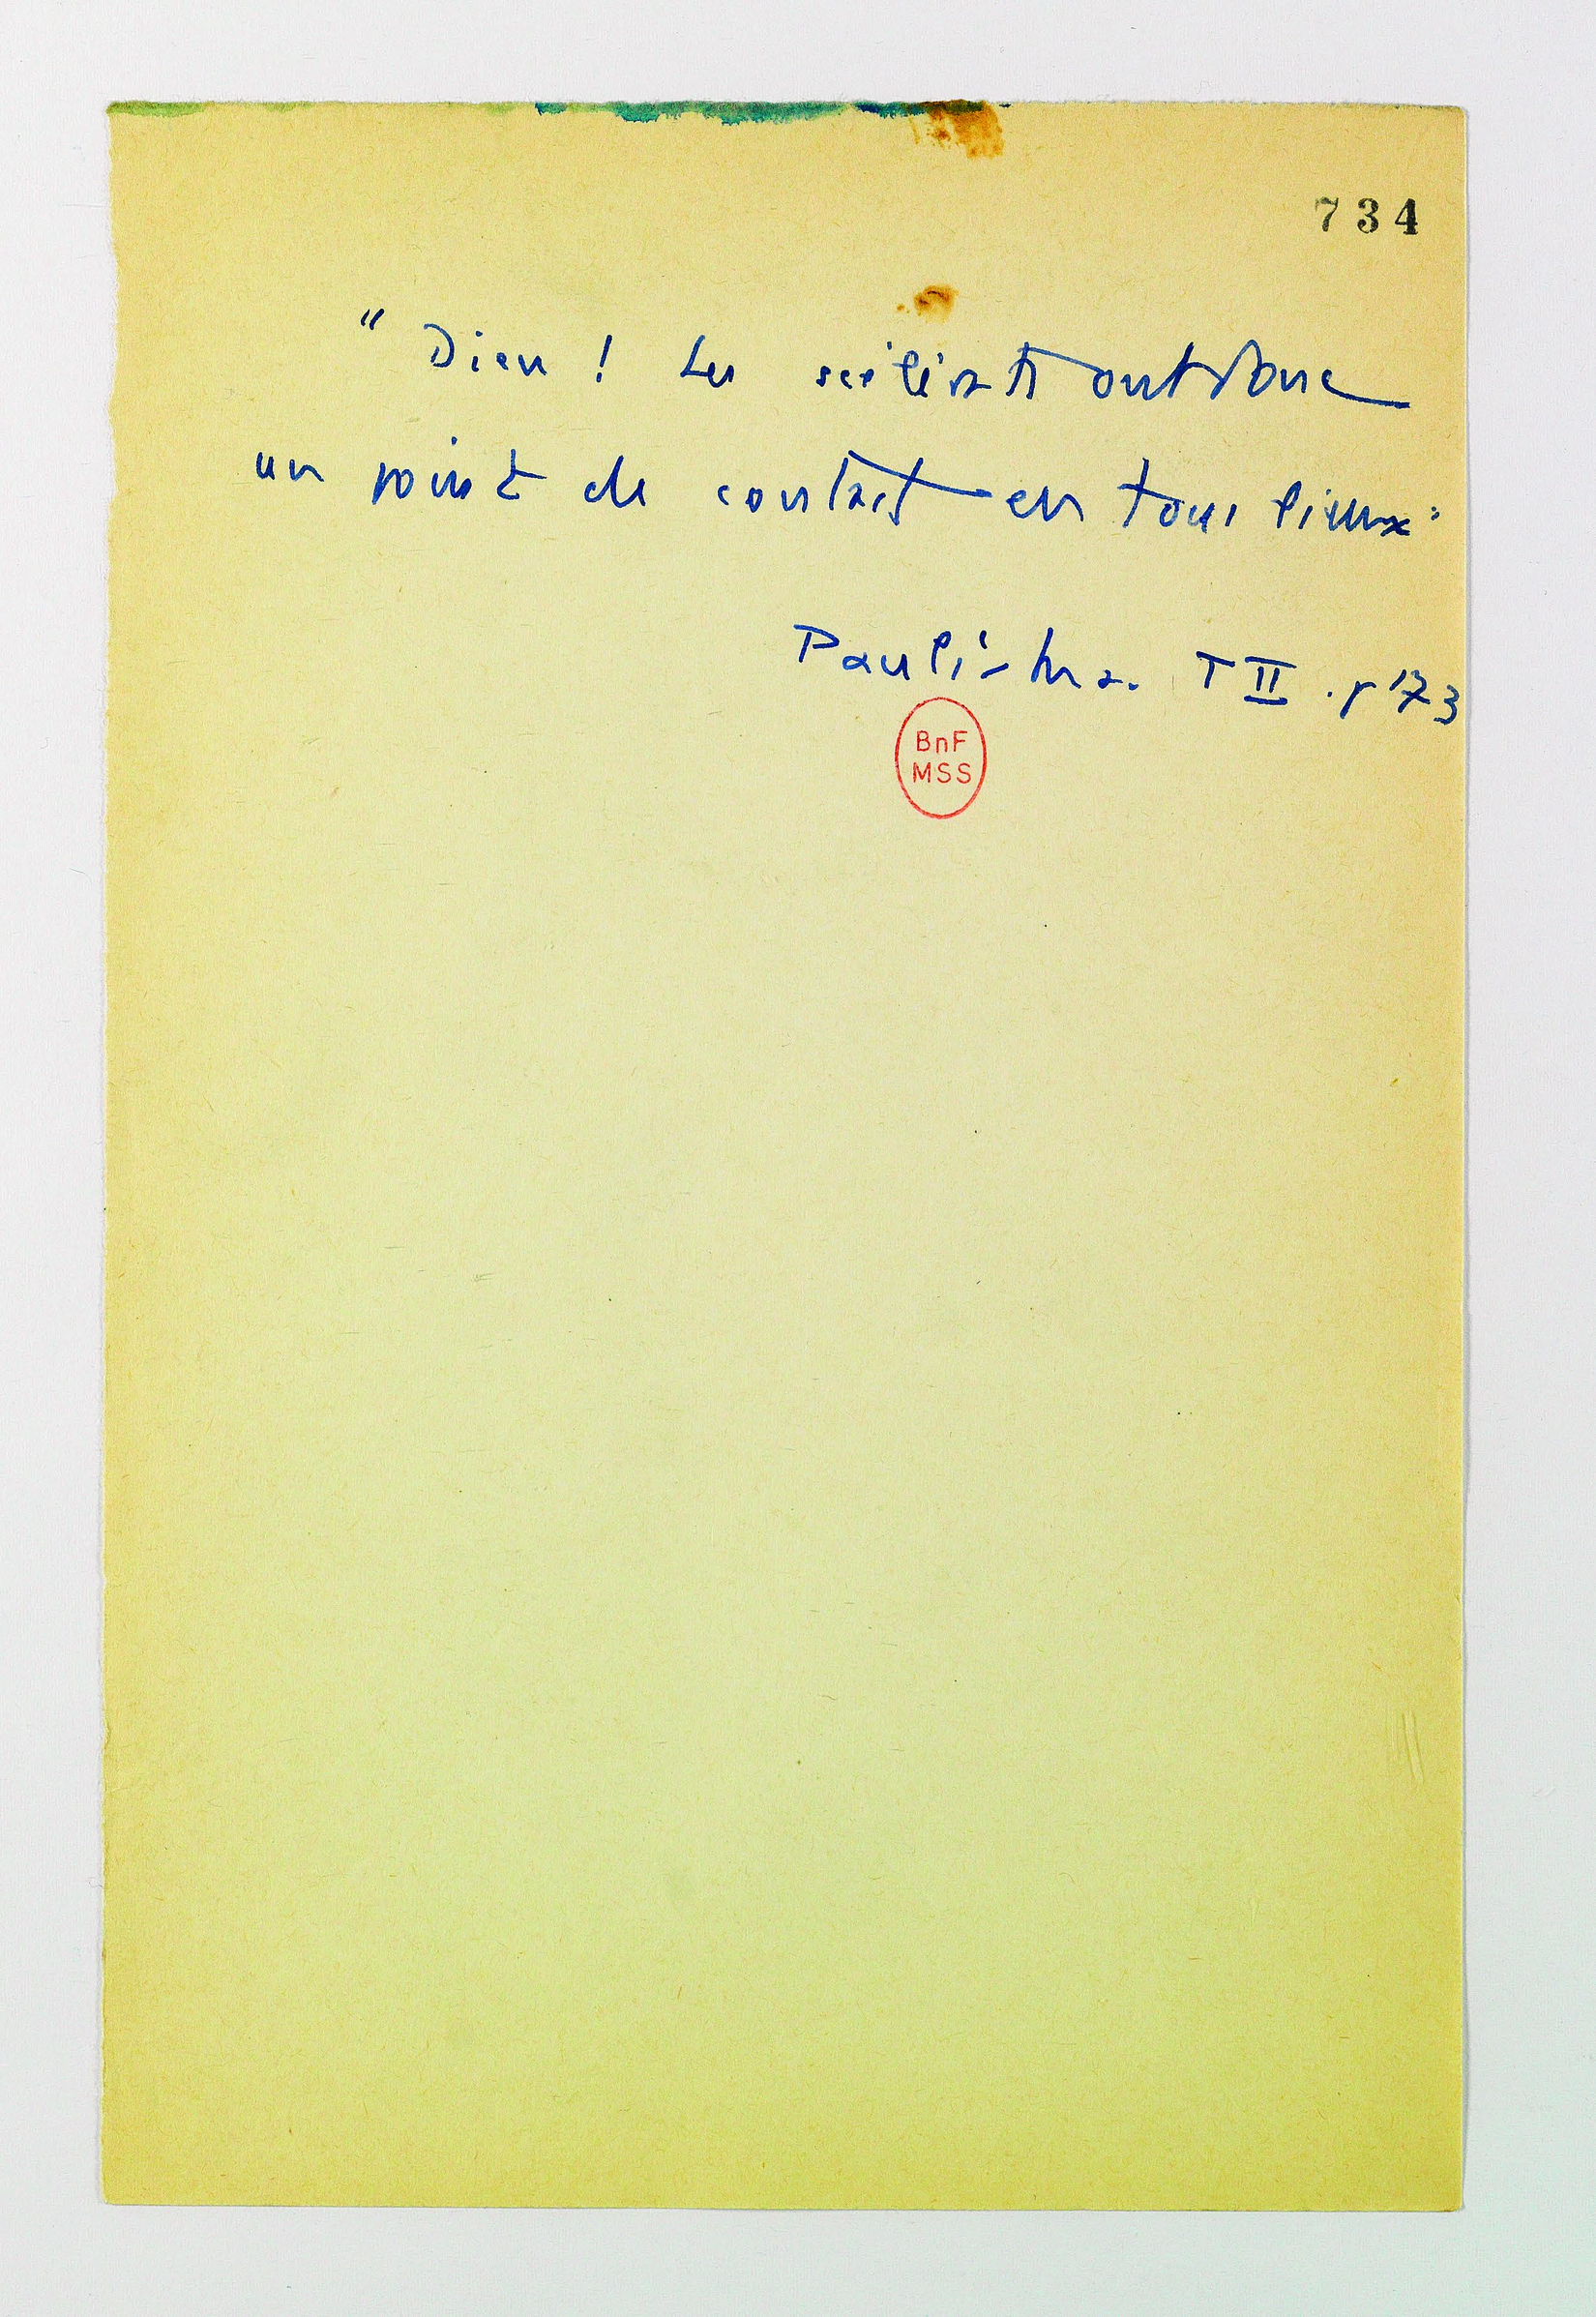 734
" Dieu ! Les scélérats ont donc
un point de contact en tous lieux"
Pauliska. T II . p 173
BnF
MSS